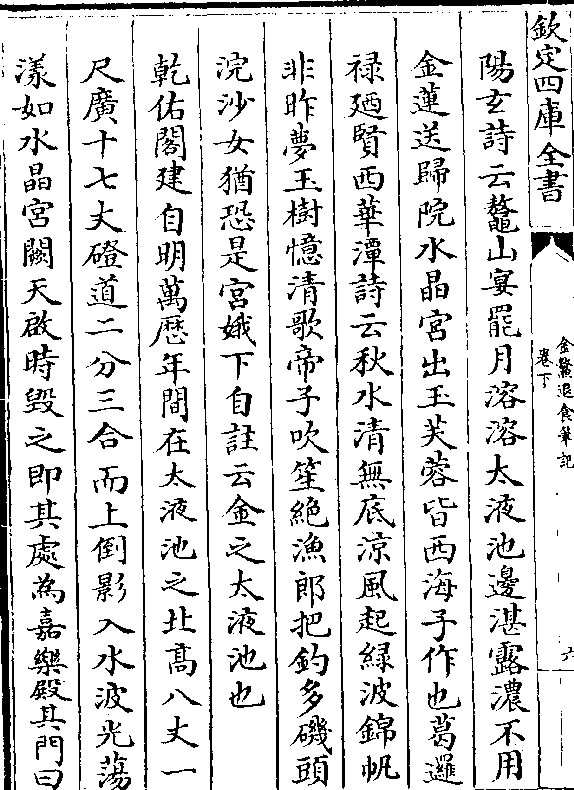 欽定四庫全書
金鰲退食筆記
卷下
六
陽玄詩云鼇山宴罷月溶溶太液池邊湛露濃不用
金蓮送歸院水晶宮出玉芙蓉皆西海子作也葛邏
禄廼賢西華潭詩云秋水清無底涼風起緑波錦帆
非昨夢玉樹憶清歌帝子吹笙絶漁郎把釣多磯頭
浣沙女猶恐是宮娥下自註云金之太液池也
乾佑閣建自明萬厯年間在太液池之北高八丈一
尺廣十七丈磴道二分三合而上倒影入水波光蕩
漾如水晶宮闕天啟時毁之即其處為嘉樂殿其門曰